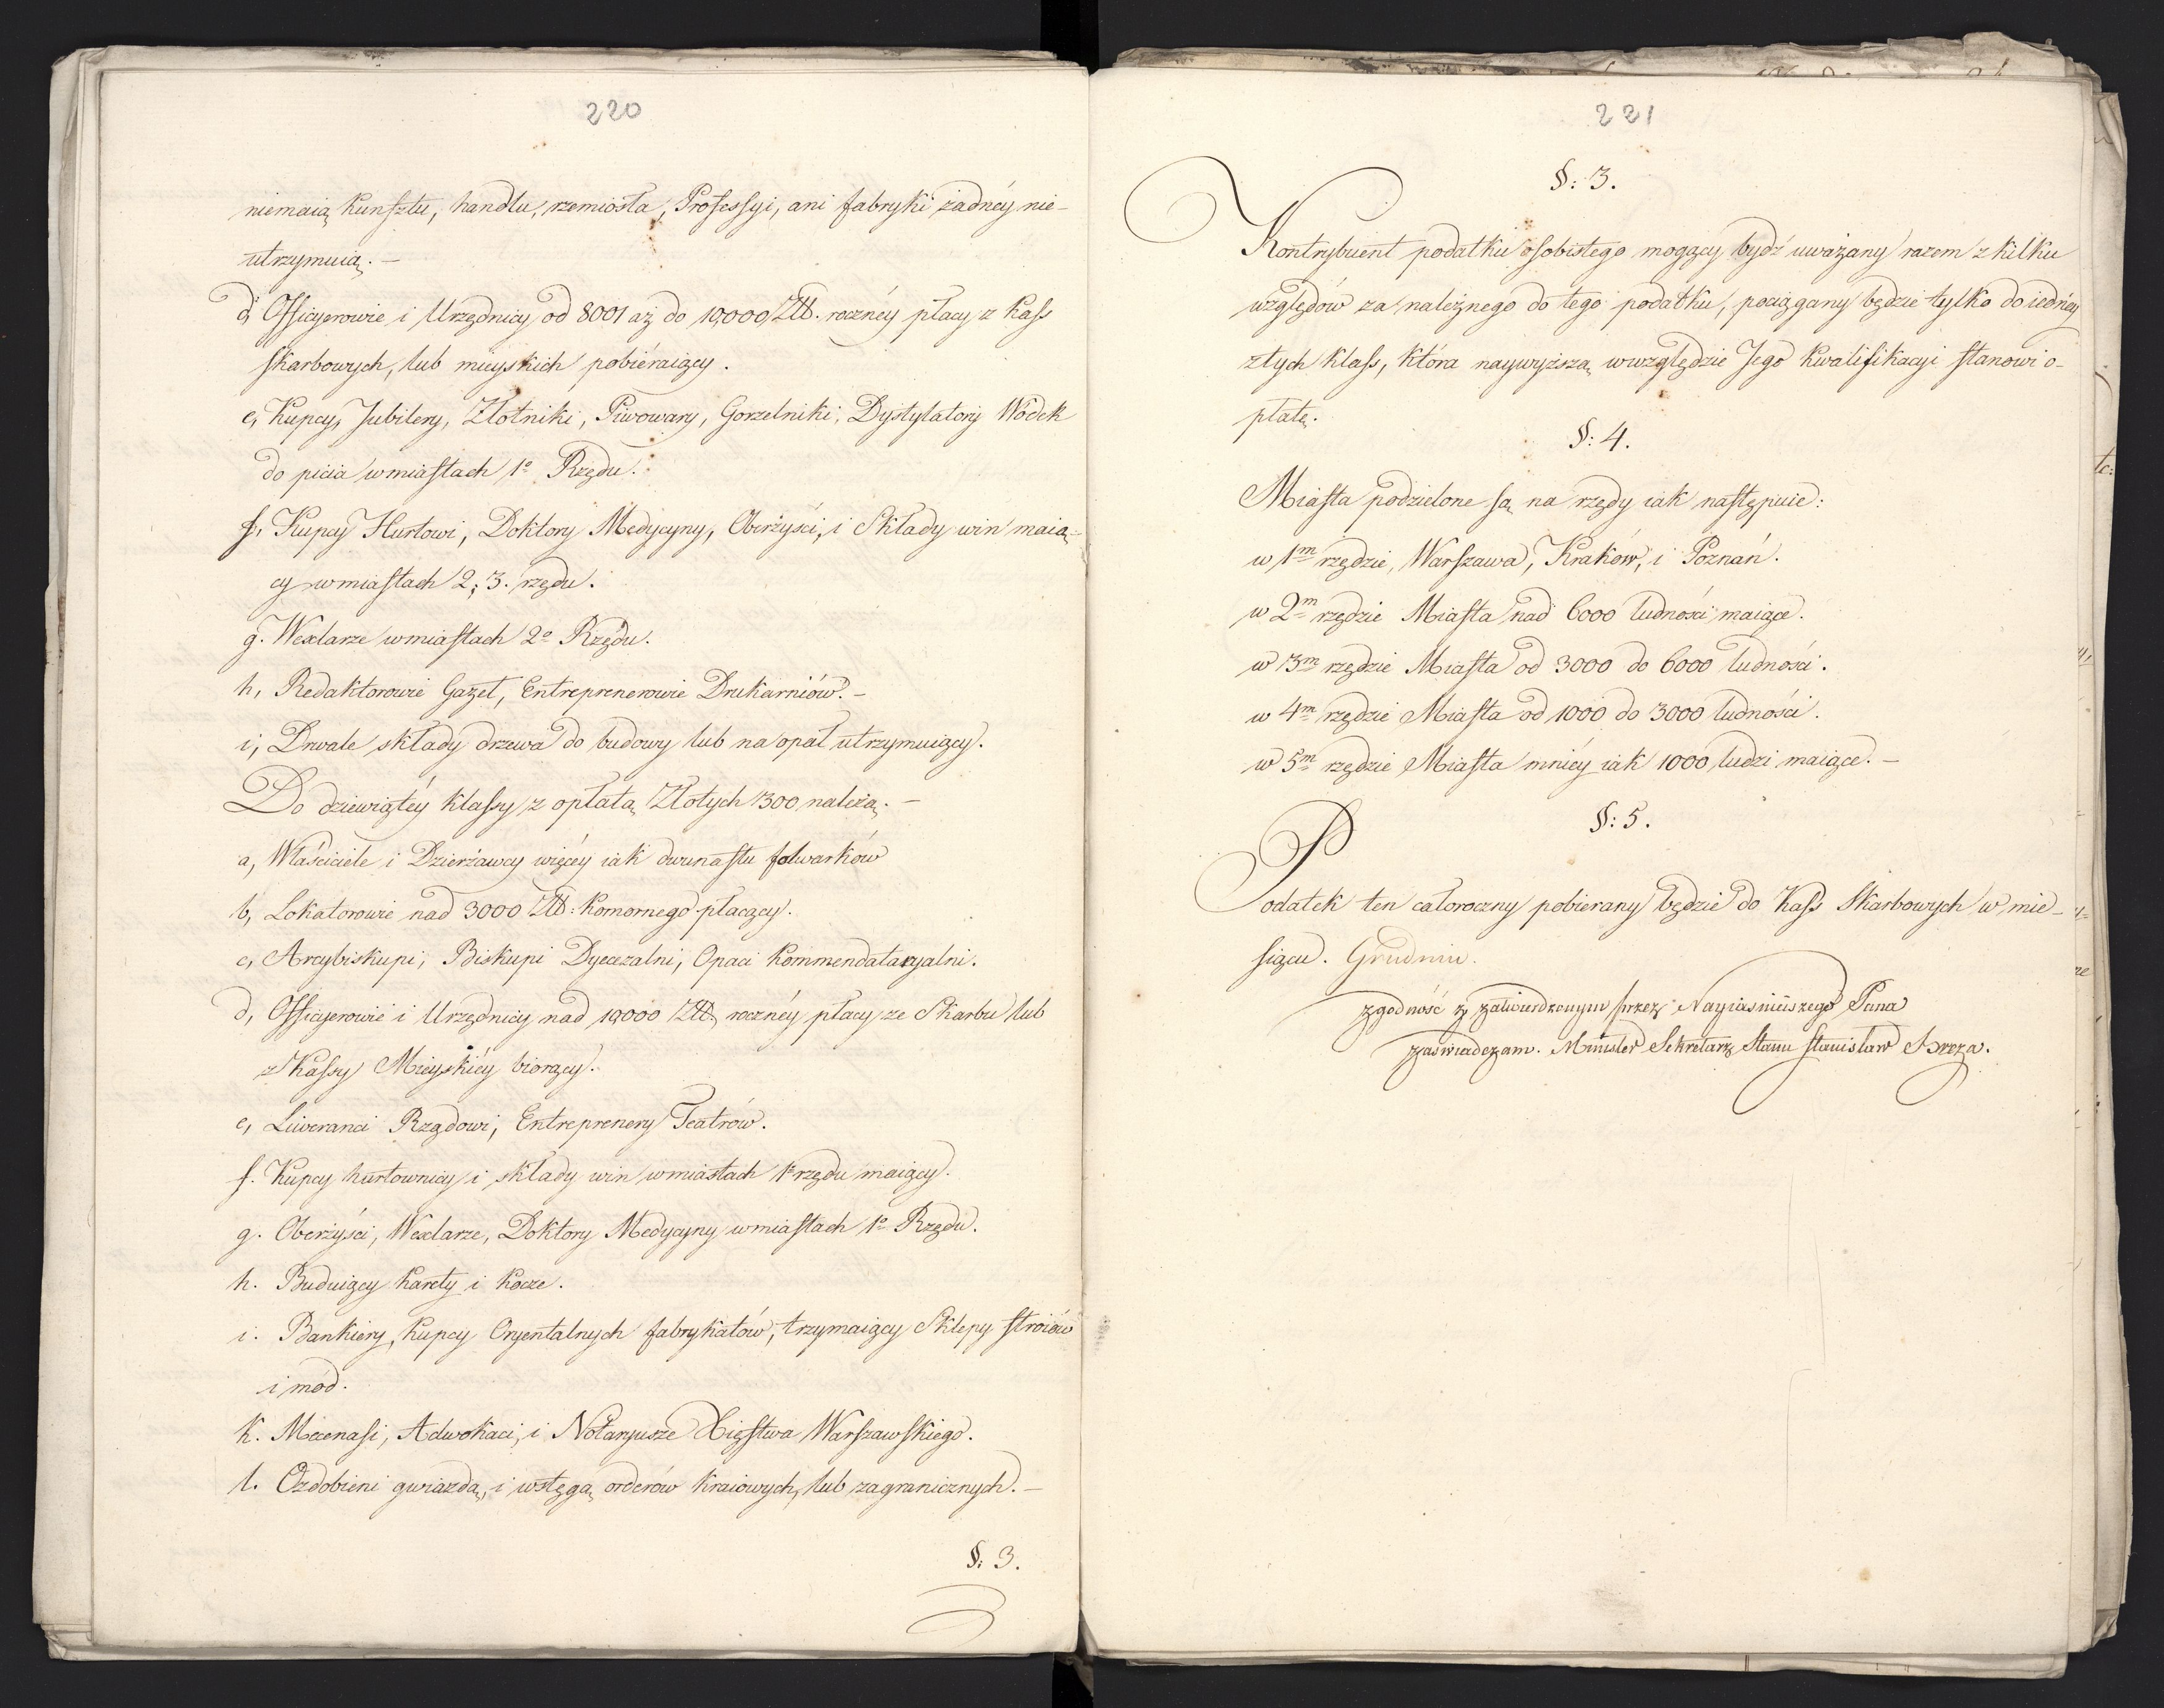 220
niemaią kunsztu, handlu, rzemiosła, Professyi, ani fabryki żadnéy nie-
utrzymuią. —
d, Officyerowie i Urzędnicy od 8001 aż do 10,000 Złł. rocznéy płacy z Kass
skarbowych, lub mieyskich pobiéraiący.
e, Kupcy, Jubilery, Złotniki, Piwowary, Gorzelniki, Dystylatory Wódek
do picia w miastach 1o Rzędu.
f, Kupcy Hurtowi, Doktory Medycyny, Oberżyści, i Składy win maią-
cy w miastach 2, 3. rzędu.
g. Wexlarze w miastach 2o Rzędu.
h, Redaktorowie Gazet, Entreprenerowie Drukarniów. —
i, Drwale składy drzewa do budowy lub na opał utrzymuiący.
Do dziewiątéy klassy z opłatą Złotych 300 należą. —
a, Właściciele i Dzierżawcy więcéy iak dwunastu folwarków
b, Lokatorowie nad 3000 Złł: komornego płacący.
c, Arcybiskupi, Biskupi Dyecezalni, Opaci kommendataryalni.
d, Officyerowie i Urzędnicy nad 10,000 Złł. rocznéy płacy ze Skarbu lub
z Kassy Mieyskiéy biorący.
e, Liweranci Rządowi, Entreprenery Teatrów.
f. Kupcy hurtownicy i składy win w miastach 1o rzędu maiący.
g. Oberżyści, Wexlarze, Doktory Medycyny w miastach 1o Rzędu.
h. Buduiący karety i kocze.
i. Bankiery, kupcy Oryentalnych fabrykatów, trzymaiący Sklepy stroiów
i mod.
k. Mecenasi, Adwokaci, i Notaryusze Xięstwa Warszawskiego.
l. Ozdobieni gwiazdą, i wstęgą orderów kraiowych, lub zagranicznych. —
§. 3.
221
§: 3.
Kontrybuent podatku osobistego mogący bydź uważany razem z kilku
względów za należnego do tego podatku, pociągany będzie tylko do iednéy
z tych klass, która naywyższą w względzie Jego kwalifikacyi stanowi o-
płatę.
§: 4.
Miasta podzielone są na rzędy iak następuie:
w 1m rzędzie, Warszawa, Kraków, i Poznań.
w 2m rzędzie Miasta nad 6000 ludności maiące.
w 3m rzędzie Miasta od 3000 do 6000 ludności.
w 4m rzędzie Miasta od 1000 do 3000 ludności.
w 5m rzędzie Miasta mniéy iak 1000 ludzi maiące. —
§: 5.
Podatek ten całoroczny pobierany będzie do Kass Skarbowych w mie-
siącu. Grudniu.
zgodność z zatwierdzonym przez Nayiaśnieiszego Pana
zaświadczam. Minister Sekretarz Stanu Stanisław Breza.